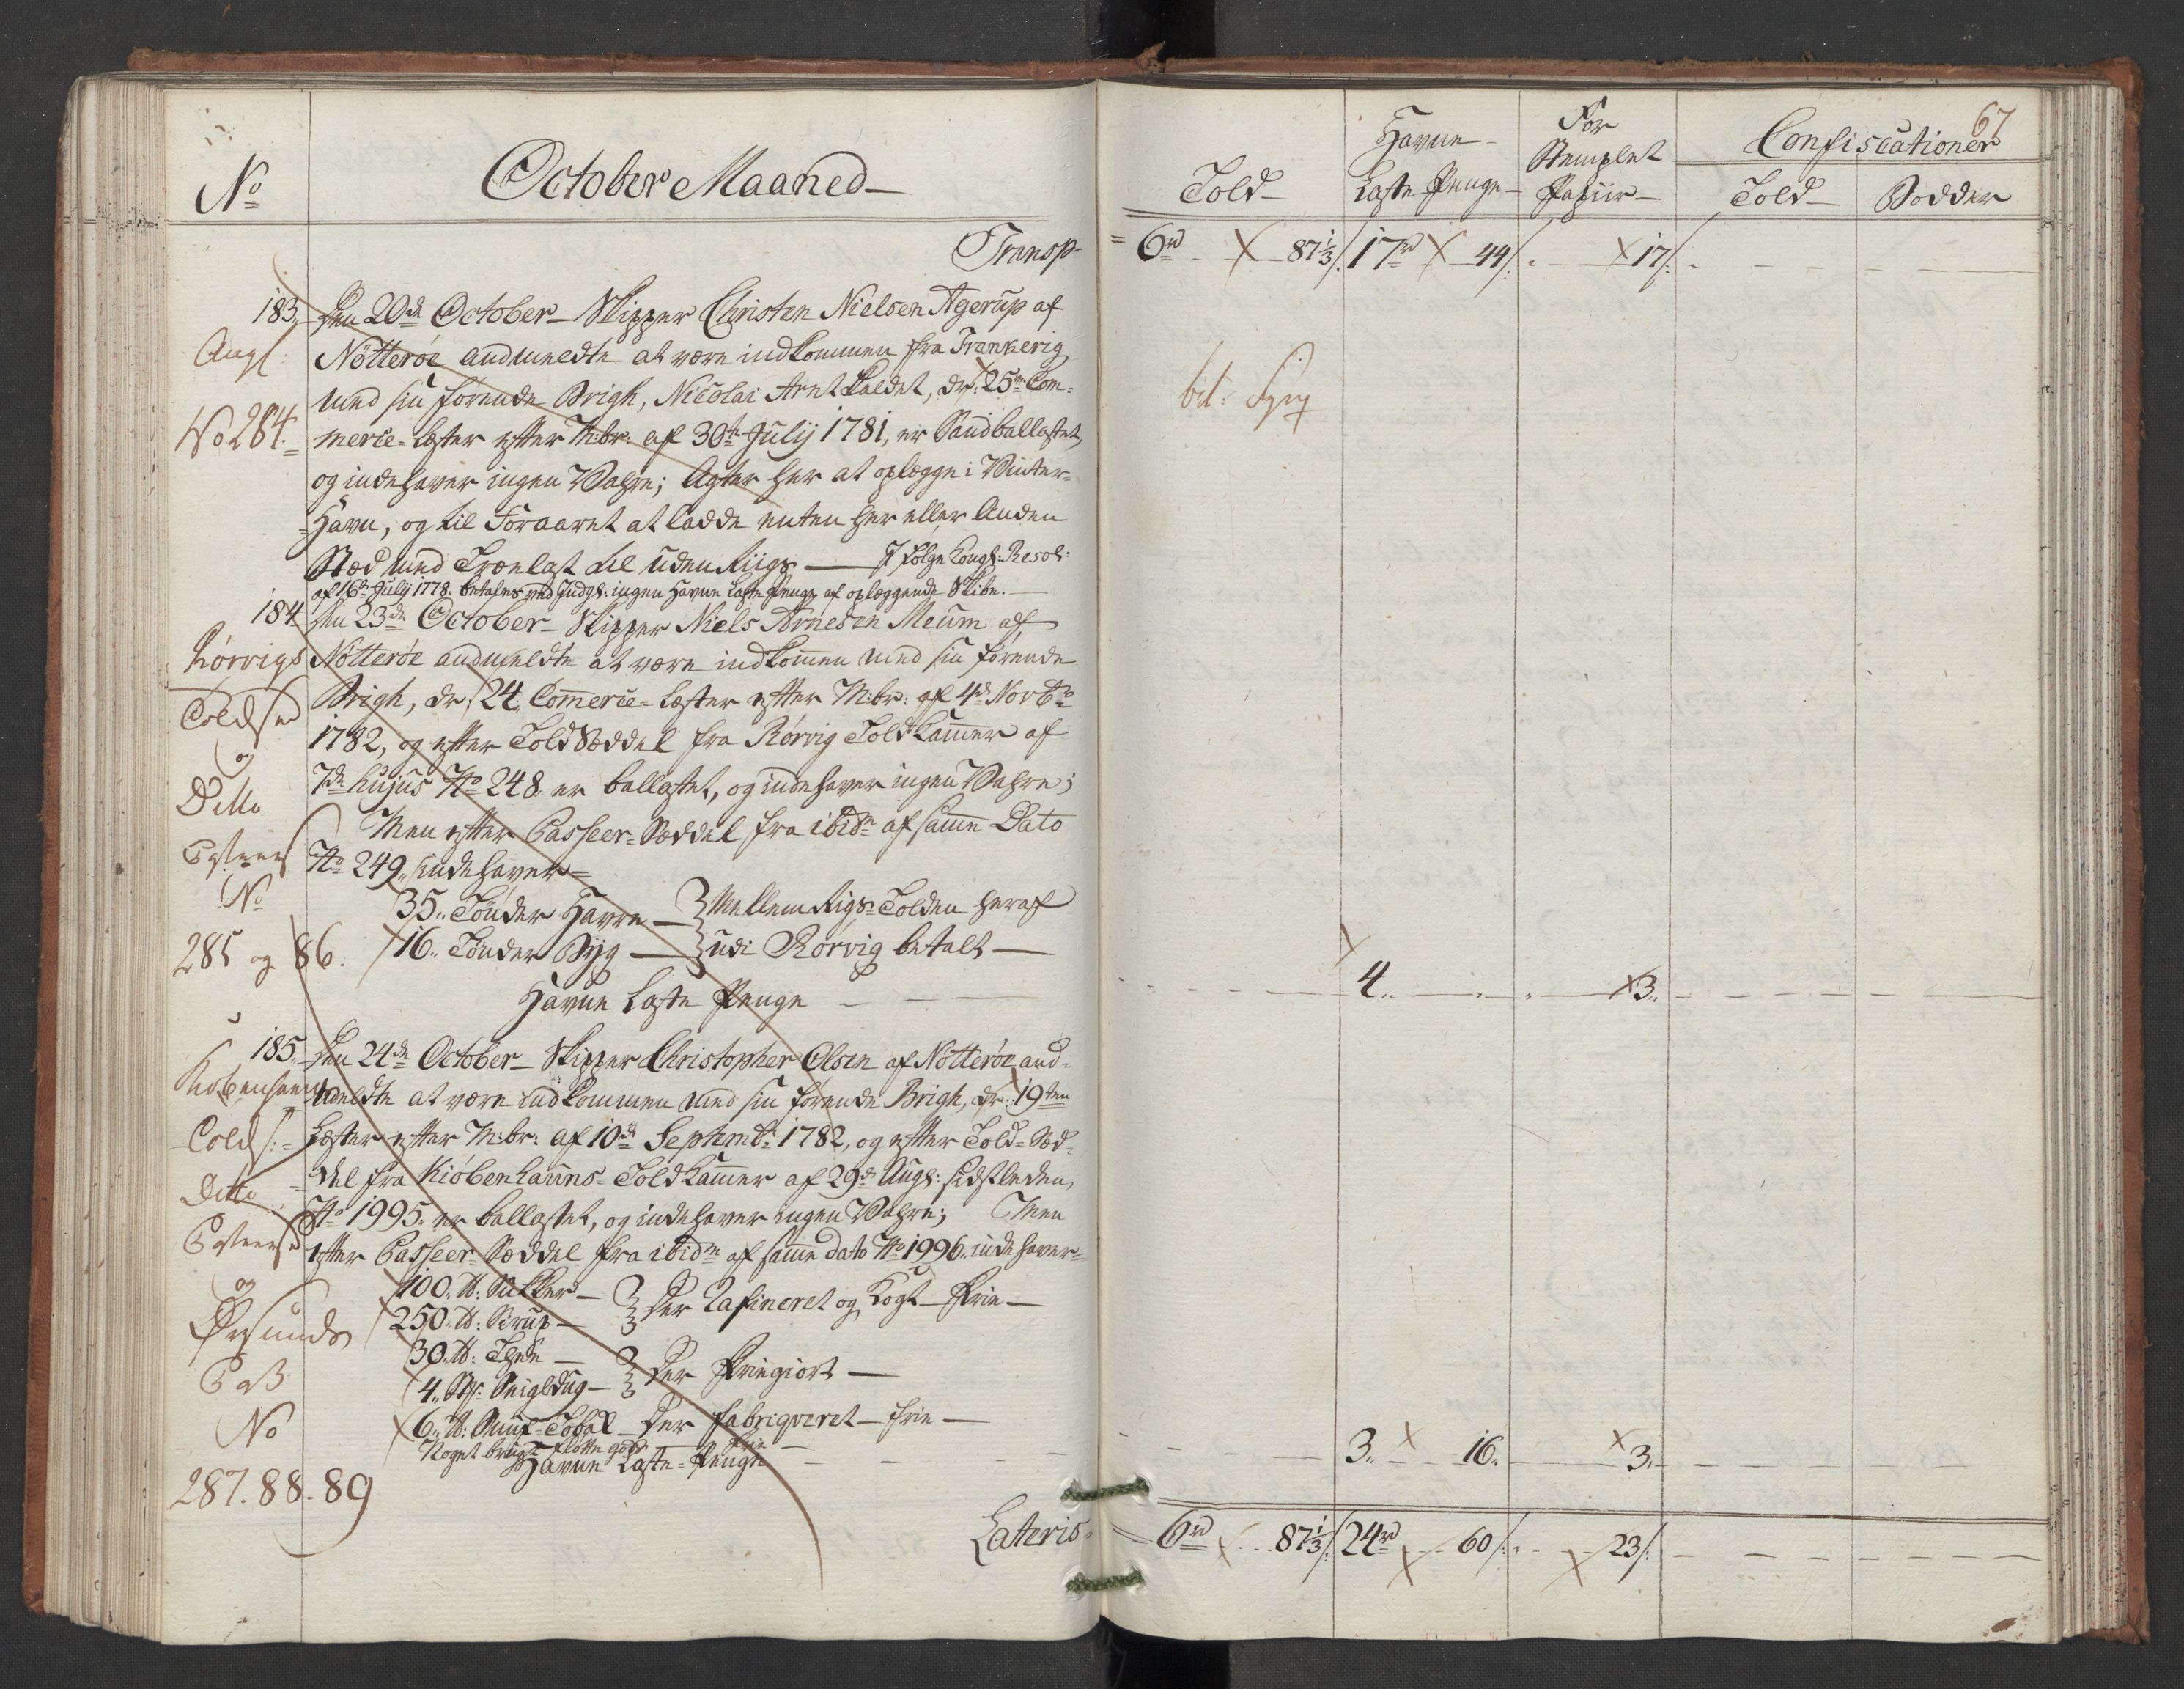 No
October Maaned
Transp
183. Den 20de October Skipper Christen Nielsen Agerup af
Nötteröe andmeldte at være indkommen fra Frankerig
med sin förende Brigh, Nicolai Arnt kaldet, dr: 25 Com=
merce=Læster efter M:br: af 30te Julij 1781, er Sandballastet,
og indehaver ingen Vahre; Agter her at oplægge i Vinter=
=Havn, og til Foraaret at ladde enten her eller Anden
Stæd med Trælast til udenRiigs — I Følge Kongl: Resol:
af 16de Julij 1778. betales ved Indgl: ingen Havne Laste Penge af oplæggende Skibe. —
Angl:
No 284.
184. Den 23de October Skipper Niels Arnesen Meum af
Nötteröe andmeldte at være indkommen med sin förende
Brigh, dr: 24. Commerce=Læster efter M:br: af 4de Novbr
1782, og efter ToldSæddel fra Rörvig Toldkammer af
7de hujus No 248 er ballastet, og indehaver ingen Vahre;
Men efter Passeer=Sæddel fra ibidm af samme Dato
No 249. indehaver=
35. Tönder Havre — Mellem Rigs Tolden heraf
16. Tönder Byg — udi Rörvig betalt —
Havne Laste Penge
Rörvigs
Toldsed
og
Ditto
Passeers
No
285 og 86.
185. Den 24de October Skipper Christopher Olsen af Nötteröe and=
meldte at være indkommen med sin förende Brigh, dr: 19ten
Læster efter M:br: af 10de Septembr 1782, og efter Told=Sed=
del fra Kiöbenhavns Toldkammer af 29de Augl: sidstleden,
No 1995. er ballastet, og indehaver ingen Vahre; Men
efter Passeer=Sæddel fra ibidm af samme dato No 1996. indehaver=
100. lb: Sukker —
250. lb: Sirup — Der Rafineret og Kogt — Frie —
30. lb: Thee —
4. St: Seigldug — Der Friegiort —
6. lb: Snuf=Tobak — Der fabriqveret — frie —
Noget brugt Flötte gods frie
Havne Laste=Penge
Kiöbenhavns
Tolds:
Ditto
Passeers
og
Öresunds
Pas
No
287. 88. 89
Lateris
67
Told
Havne
Laste Penge
For
Stemplet
Papiir
Confiscationer
Told
Bödder
6rd 87 1/3 17rd 44 17
4. 3.
3. 16. 3.
6rd 87 1/3 24rd 60 23